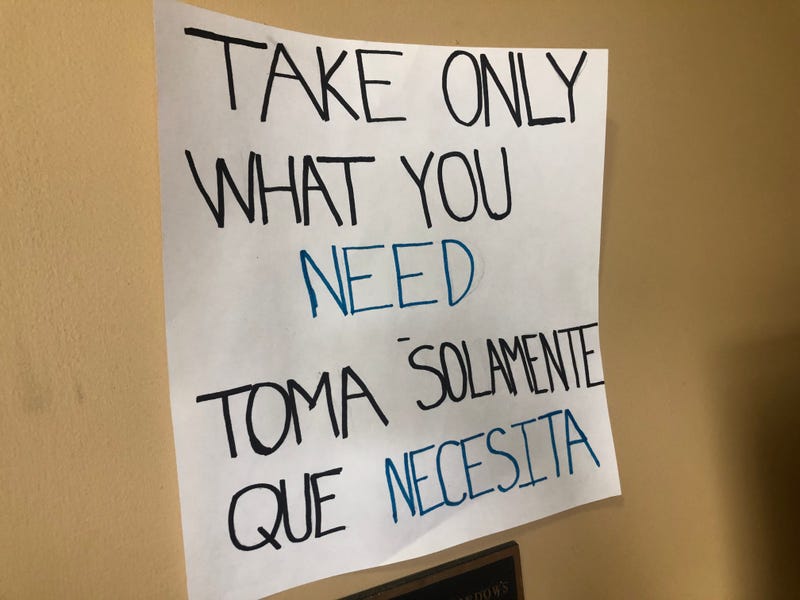 TAKE ONLY
WHAT YOU
NEED
TOMA SOLAMENTE
QUE NECESITA